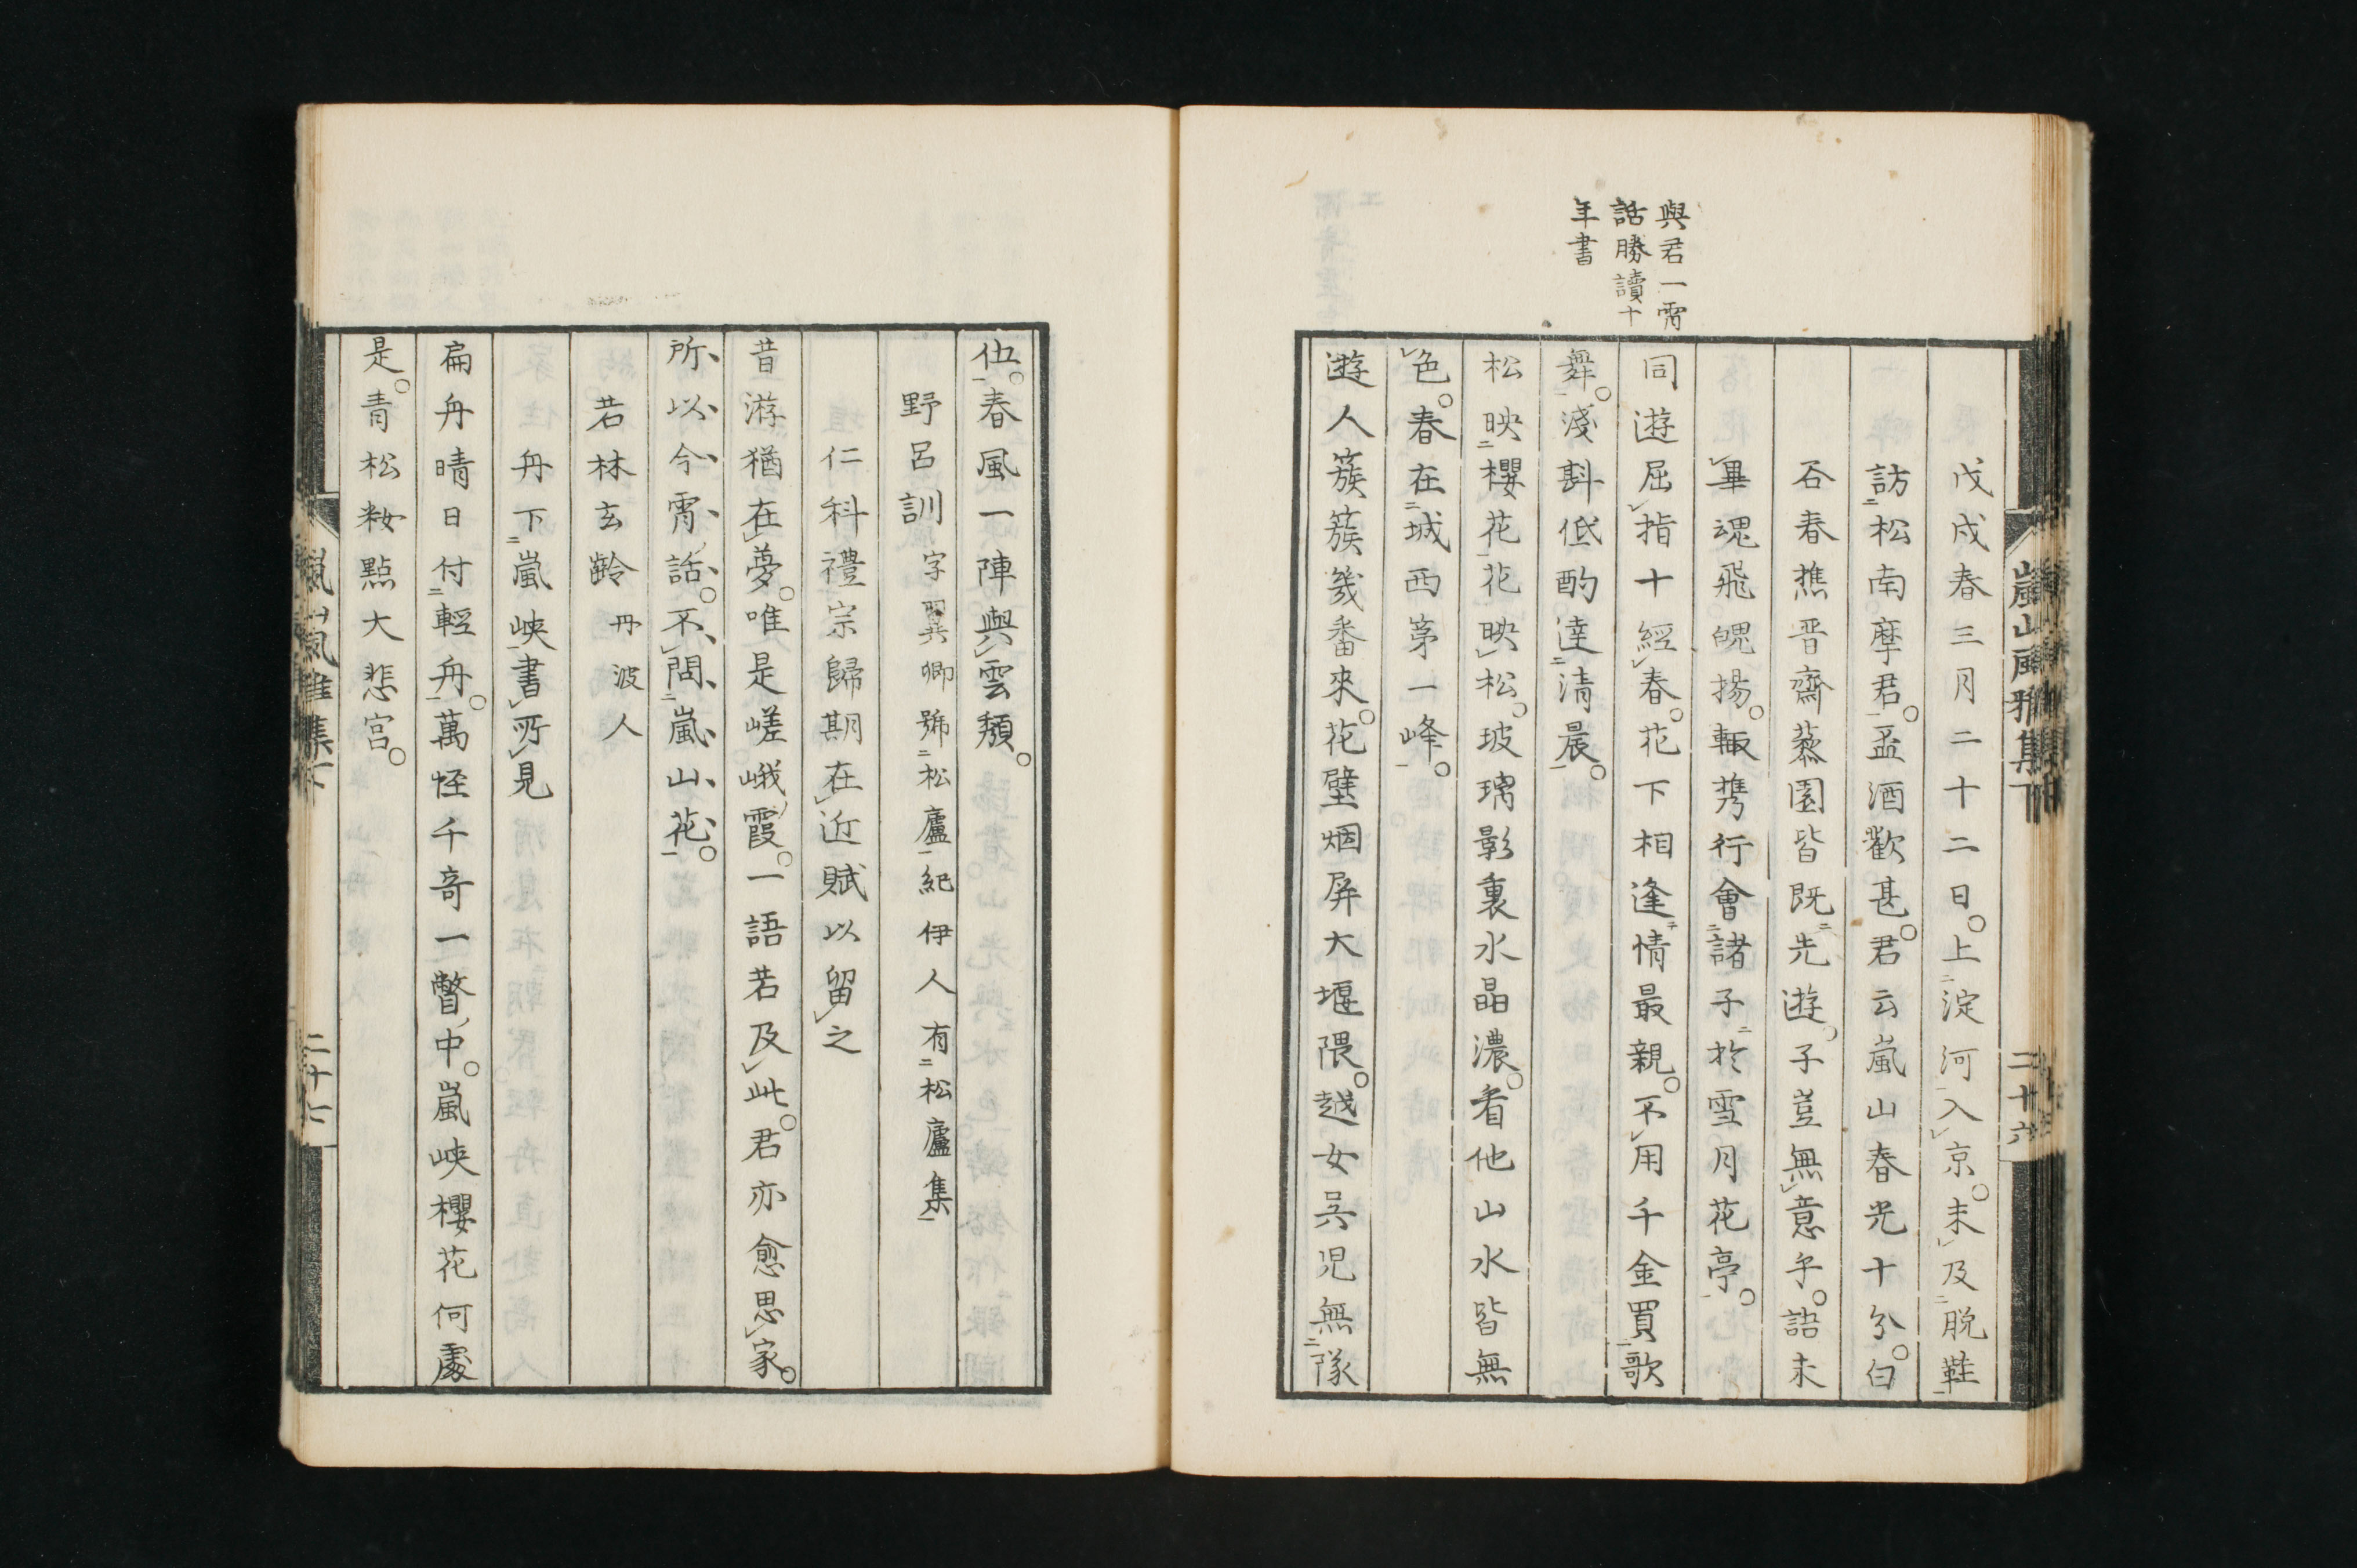 與君一宵
話勝讀十
年書
嵐山風雅集下
二十六
戊戌春三月二十二日。上淀河入京。未及脱鞋
訪松南摩君。盃酒歡甚。君云嵐山春光十分。白
石春樵晋齋蘓園皆既先遊。子豈無意乎。語未
畢魂飛魄揚。輙携行會諸子於雪月花亭。
同遊屈指十經春。花下相逢情最親。不用千金買歌
舞。淺斟低酌達清晨。
松映櫻花花映松。玻璃影裏水晶濃。看他山水皆無
色。春在城西第一峰。
遊人簇簇幾番來。花壁烟屏大堰隈。越女呉児無隊
伍。春風一陣與雲頽。
野呂訓 字翼卿號松廬紀伊人有松廬集
仁科禮宗歸期在近賦以留之
昔游猶在夢。唯是嵯峨霞。一語若及此。君亦愈思家。
所以今宵話。不問嵐山花。
若林玄齡 丹波人
舟下嵐峽書所見
扁舟晴日付輕舟。萬怪千奇一瞥中。嵐峽櫻花何處
是。青松粧點大悲宮。
嵐山風雅集下
二十七